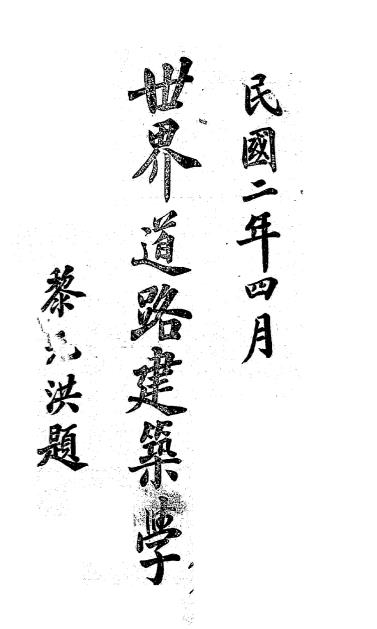 民國二年四月
世界道路建築學
黎元洪題